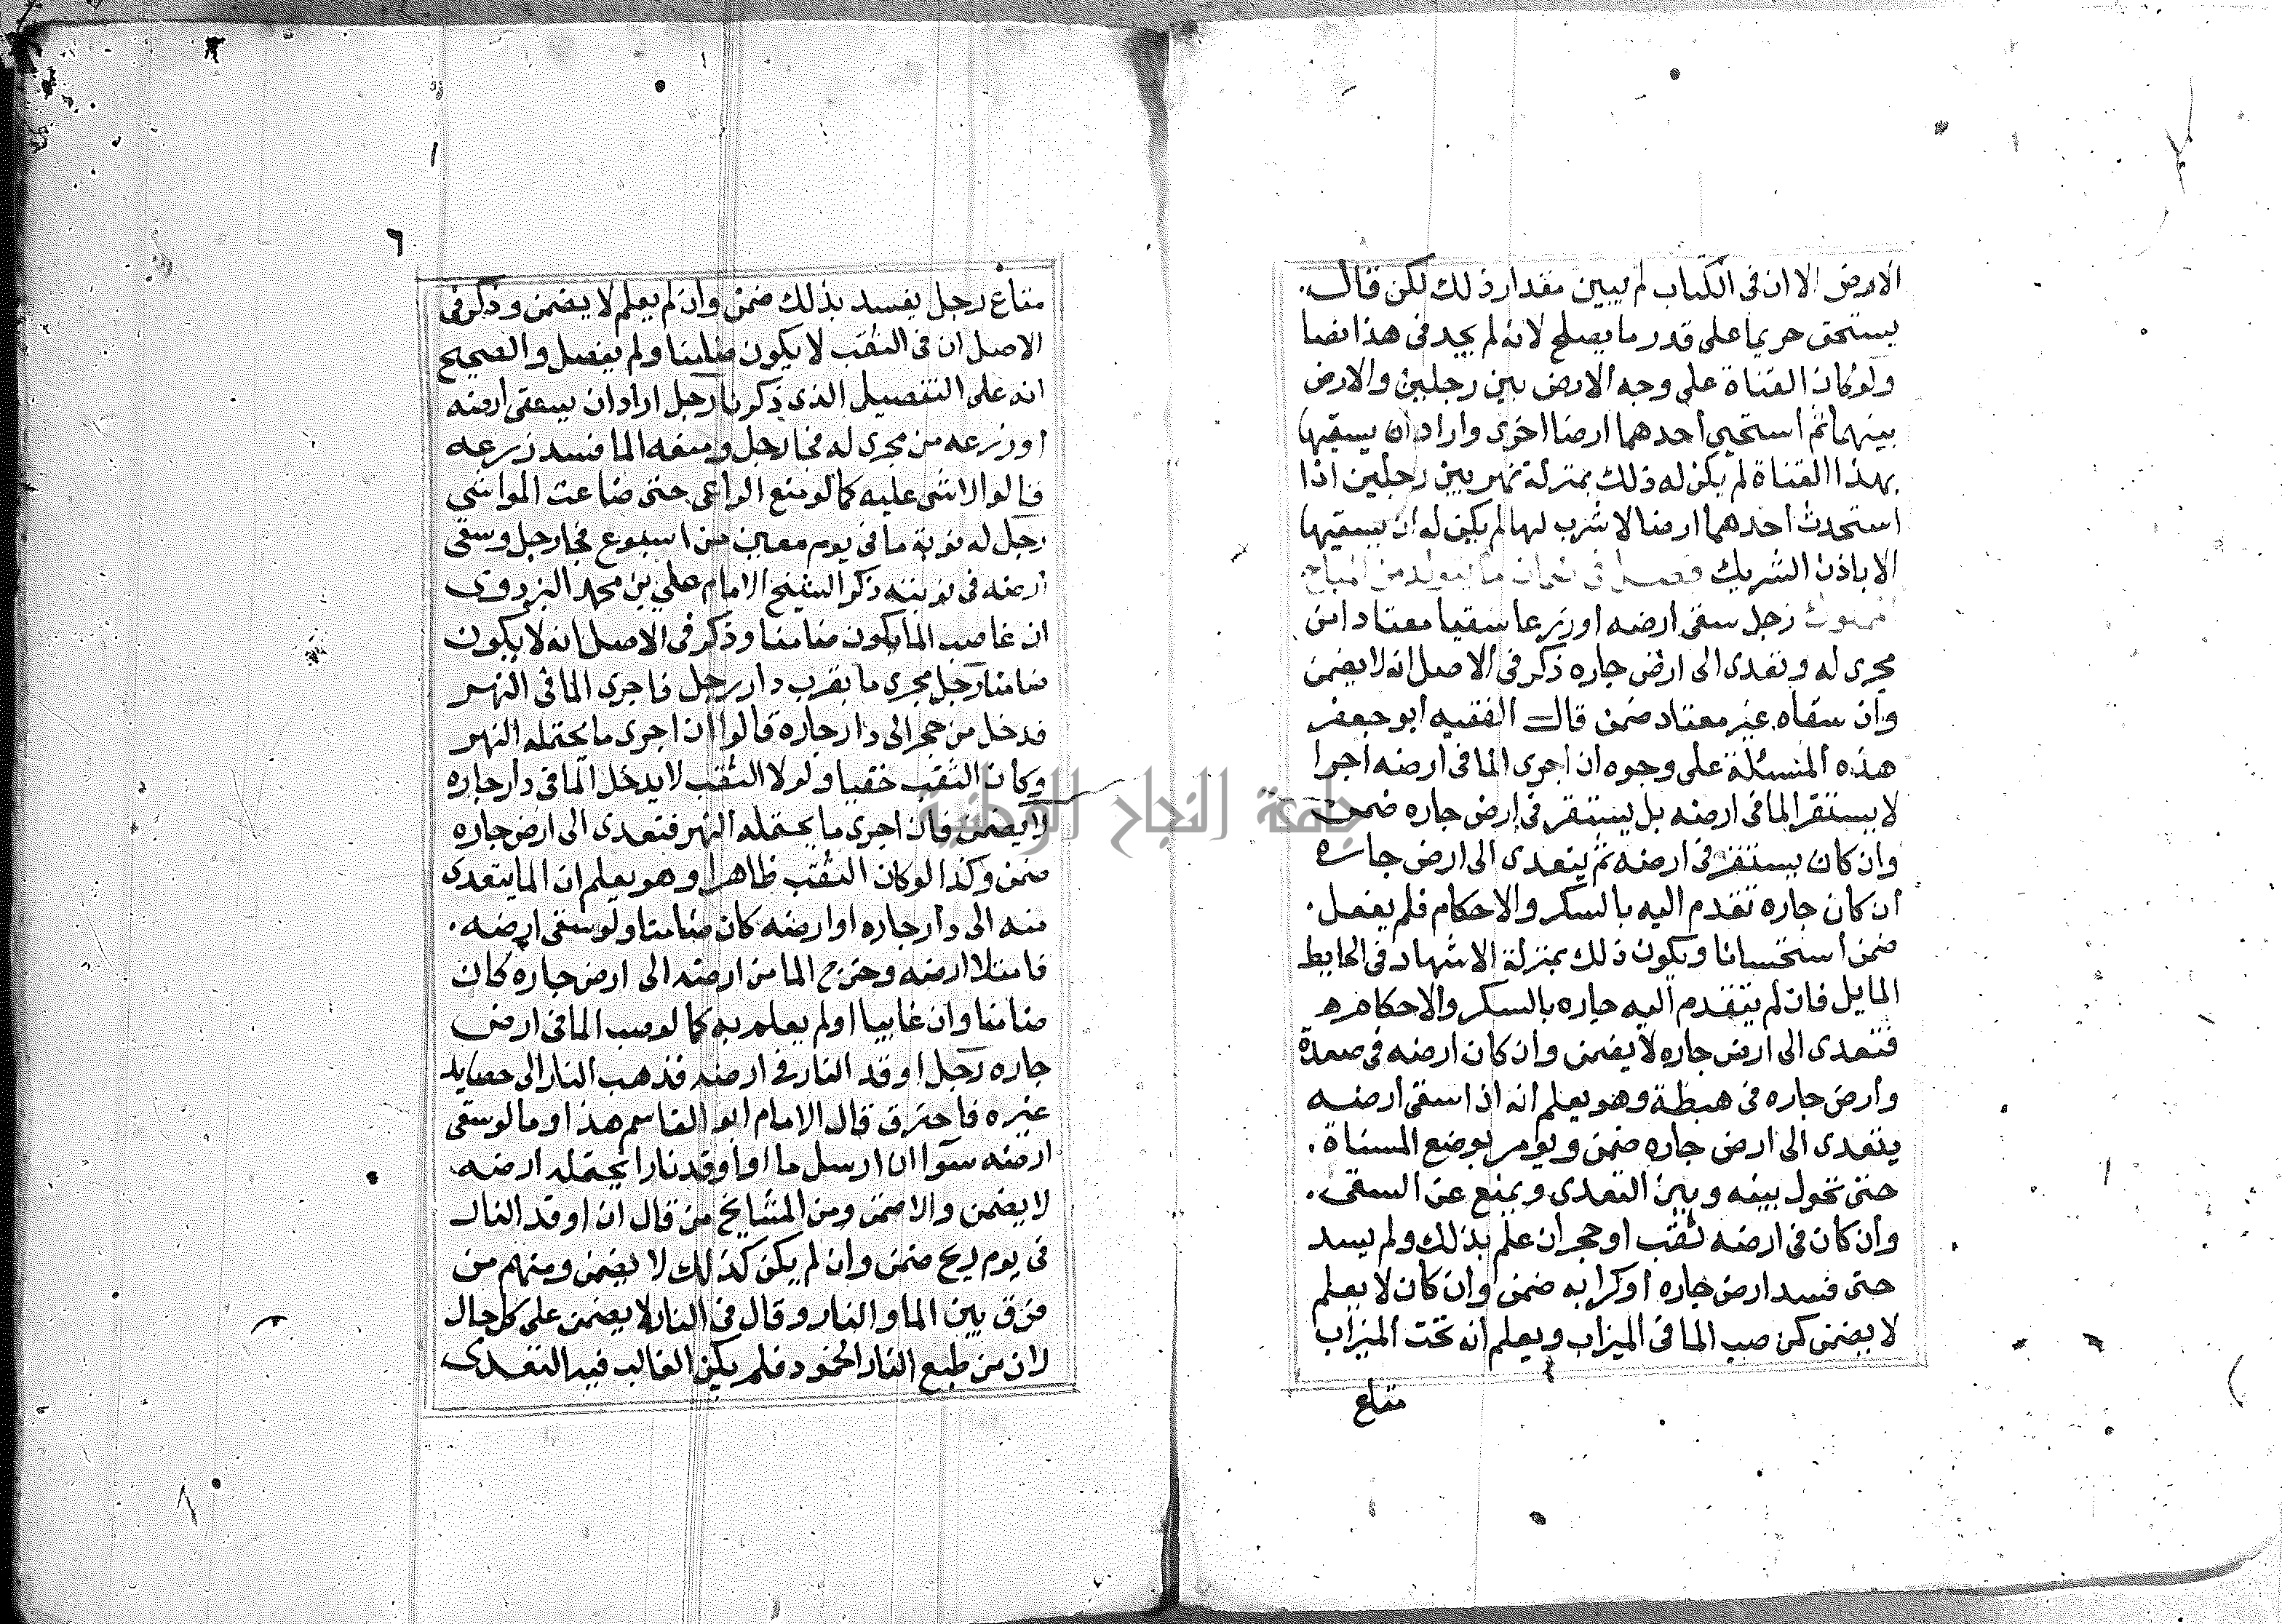 الارض الا ان فى الكتاب لم يبين مقدار ذلك لكن قال
يستحق حريما على قدر ما يصلح لانه لم يجد فى هذا نصا
ولو كان القناة على وجه الارض بين رجلين والارض
بينهما ثم استحيى احدهما ارضا اخرى واراد ان يسقيها
بهذا القناة لم يكن له ذلك بمنزلة نهر بين رجلين اذا
استحدث احدهما ارضا لا شرب لها لم يكن له ان يسقيها
الا باذن الشريك فصل فى ضمان ما يتولد من المباح
رجل سقى ارضه او زرعا سقيا معتادا من
مجرى له وتعدى الى ارض جاره ذكر فى الاصل انه لا يضمن
وان سقاه غير معتاد ضمن قال الفقيه ابو جعفر
هذه المسئلة على وجوه ان اجرى الما فى ارضه اجرا
لا يستقر الما فى ارضه بل يستقر فى ارض جاره ضمن
وان كان يستقر فى ارضه ثم يتعدى الى ارض جاره
ان كان جاره تقدم اليه بالسكر والاحكام فلم يفعل
ضمن استحسانا ويكون ذلك بمنزلة الاشهاد فى الحايط
المايل فان لم يتقدم اليه جاره بالسكر والاحكام
فتعدى الى ارض جاره لا يضمن وان كان ارضه فى صعدة
وارض جاره فى هبطة وهو يعلم انه اذا سقى ارضه
يتعدى الى ارض جاره ضمن ويومر بوضع المسناة
حتى تحول بينه وبين التعدى ويمنع عن السقى
وان كان فى ارضه ثقب او حجر ان علم بذلك ولم يسد
حتى فسد ارض جاره او كرابه ضمن وان كان لا يعلم
لا يضمن كمن صب الما فى الميزاب ويعلم انه تحت الميزاب
متاع
٦
متاع رجل يفسد بذلك ضمن وان لم يعلم لا يضمن وذكر فى
الاصل ان فى الثقب لا يكون ضامنا ولم يفصل والصحيح
انه على التفصيل الذى ذكرنا رجل اراد ان يسقى ارضه
او زرعه من مجرى له فجا رجل ومنعه الما ففسد زرعه
قالوا لا شى عليه كما لو منع الراعى حتى ضاعت المواشى
رجل له نوبة ما فى يوم معين من اسبوع فجا رجل وسقى
ارضه فى نوبته ذكر الشيخ الامام على بن محمد البزدوى
ان غاصب الما يكون ضامنا وذكر فى الاصل انه لا يكون
ضامنا رجل مجرى ما بقرب دار رجل فاجرى الما فى النهر
فدخل من حجر الى دار جاره قالوا ان اجرى ما يحتمله النهر
وكان الثقب خفيا ولولا الثقب لا يدخل الما فى دار جاره
لا يضمن فان اجرى ما يحتمله النهر فتعدى الى ارض جاره
ضمن وكذا لو كان الثقب ظاهرا وهو يعلم ان الما يتعدى
منه الى دار جاره او ارضه كان ضامنا ولو سقى ارضه
فامتلا ارضه وخرج الما من ارضه الى ارض جاره كان
ضامنا وان غايبا او لم يعلم به كما لو صب الما فى ارض
جاره رجل اوقد النار فى ارضه فذهب النار الى حصايد
غيره فاحترق قال الامام ابو القاسم هذا وما لو سقى
ارضه سوآ ان ارسل ما او اوقد نارا يحتمله ارضه
لا يضمن والا ضمن ومن المشايخ من قال ان اوقد النار
فى يوم ريح ضمن وان لم يكن كذلك لا يضمن ومنهم من
فرق بين الما والنار وقال فى النار لا يضمن على كل حال
لان من طبع النار الخمود فلم يكن الغالب فيه التعدى
جامعة النجاح الوطنية